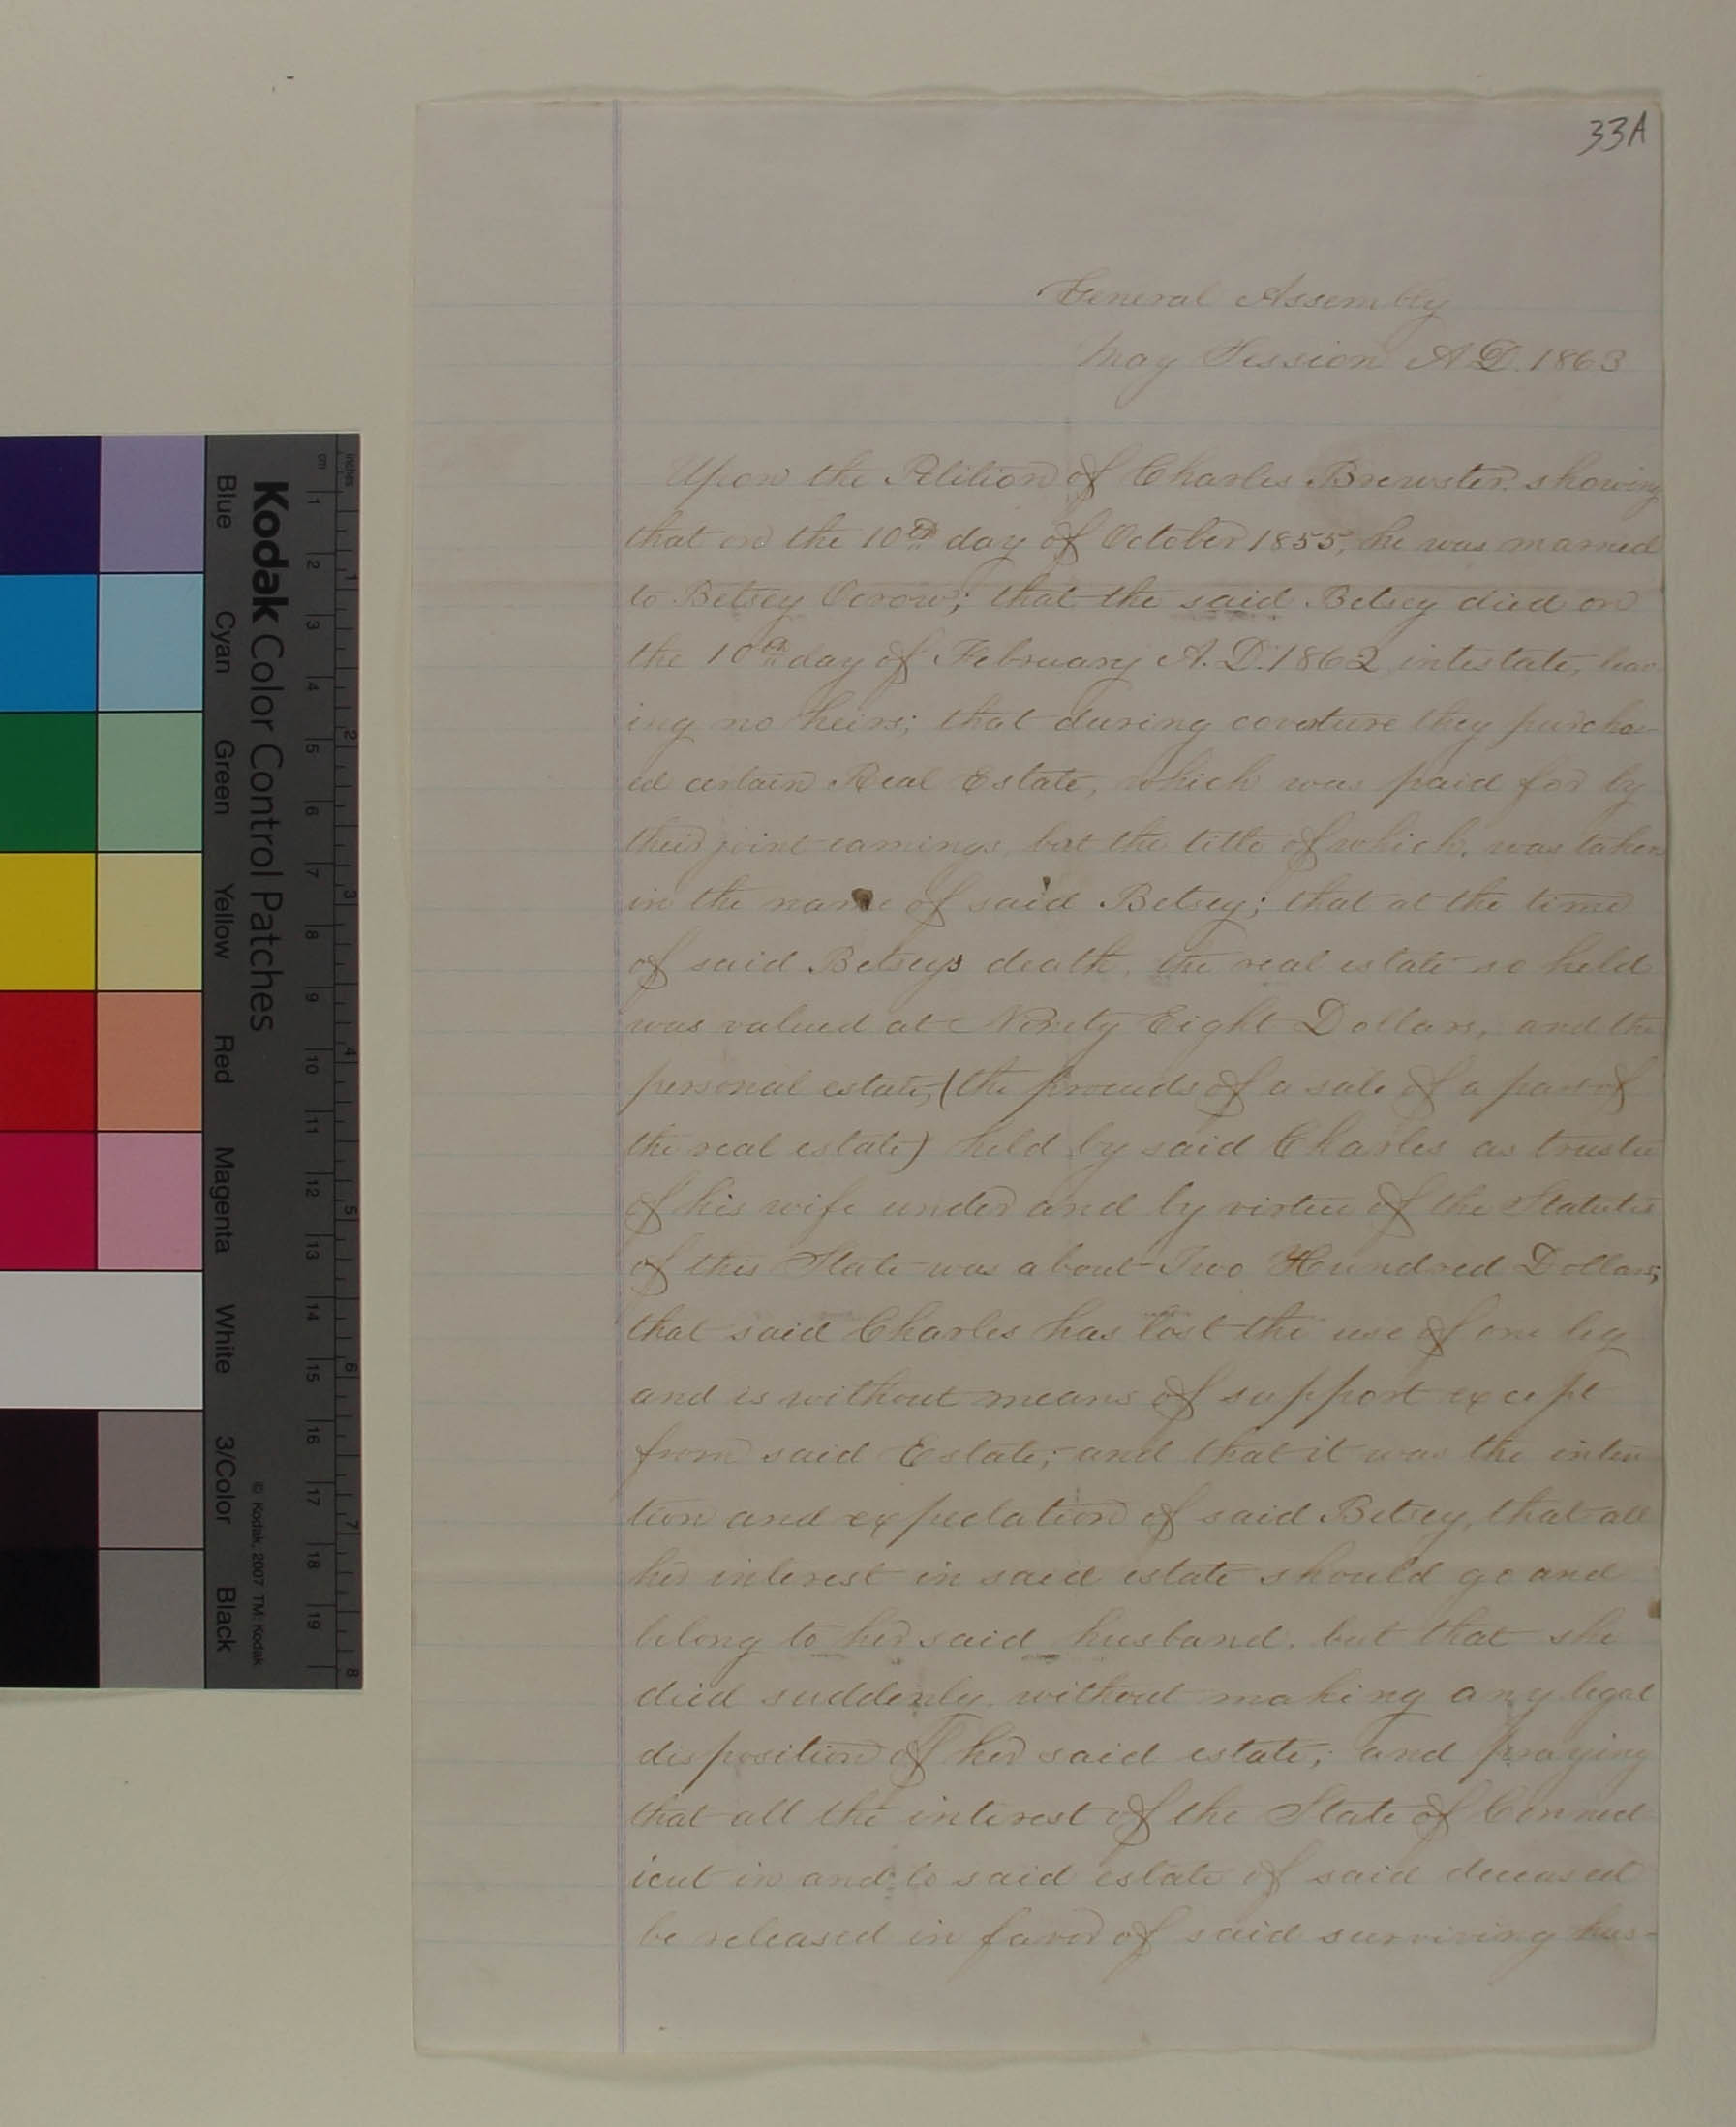 33A
General Assembly
May Session A.D. 1863
Upon the Petition of Charles Brewster showing
that on the 10th day of October 1855, he was married
to Betsey ; that the said Betsey died on
the 10th day of February A.D. 1862 intestate, leav
ing no heirs; that during coverture they purchas-
ed certain Real Estate, which was paid for by
their joint earnings but the title of which, was taken
in the name of said Betsey; that at the time
of said Betseys death, the real estate so held
was valued at Ninety Eight Dollars, and the
personal estate, (the proceeds of a sale of a part of
the real estate) held by said Charles as trustee
of his wife under and by virtue of the Statutes
of this State was about Two Hundred Dollars;
that said Charles has lost the use of one leg
and is without means of support except
from said Estate; and that it was the inten
tion and expectation of said Betsey, that all
her interest in said estate should go and
belong to her said husband, but that she
died suddenly without making any legal
disposition of her said estate; and praying
that all the interest of the State of Connect
icut in and to said estate of said deceased
be released in favor of said surviving hus-
Kodak Color Control Patches
Blue Cyan Green Yellow Red Magenta White 3/Color Black
© Kodak, 2007 TM: Kodak
cm 1 2 3 4 5 6 7 8 9 10 11 12 13 14 15 16 17 18 19
inches 1 2 3 4 5 6 7 8